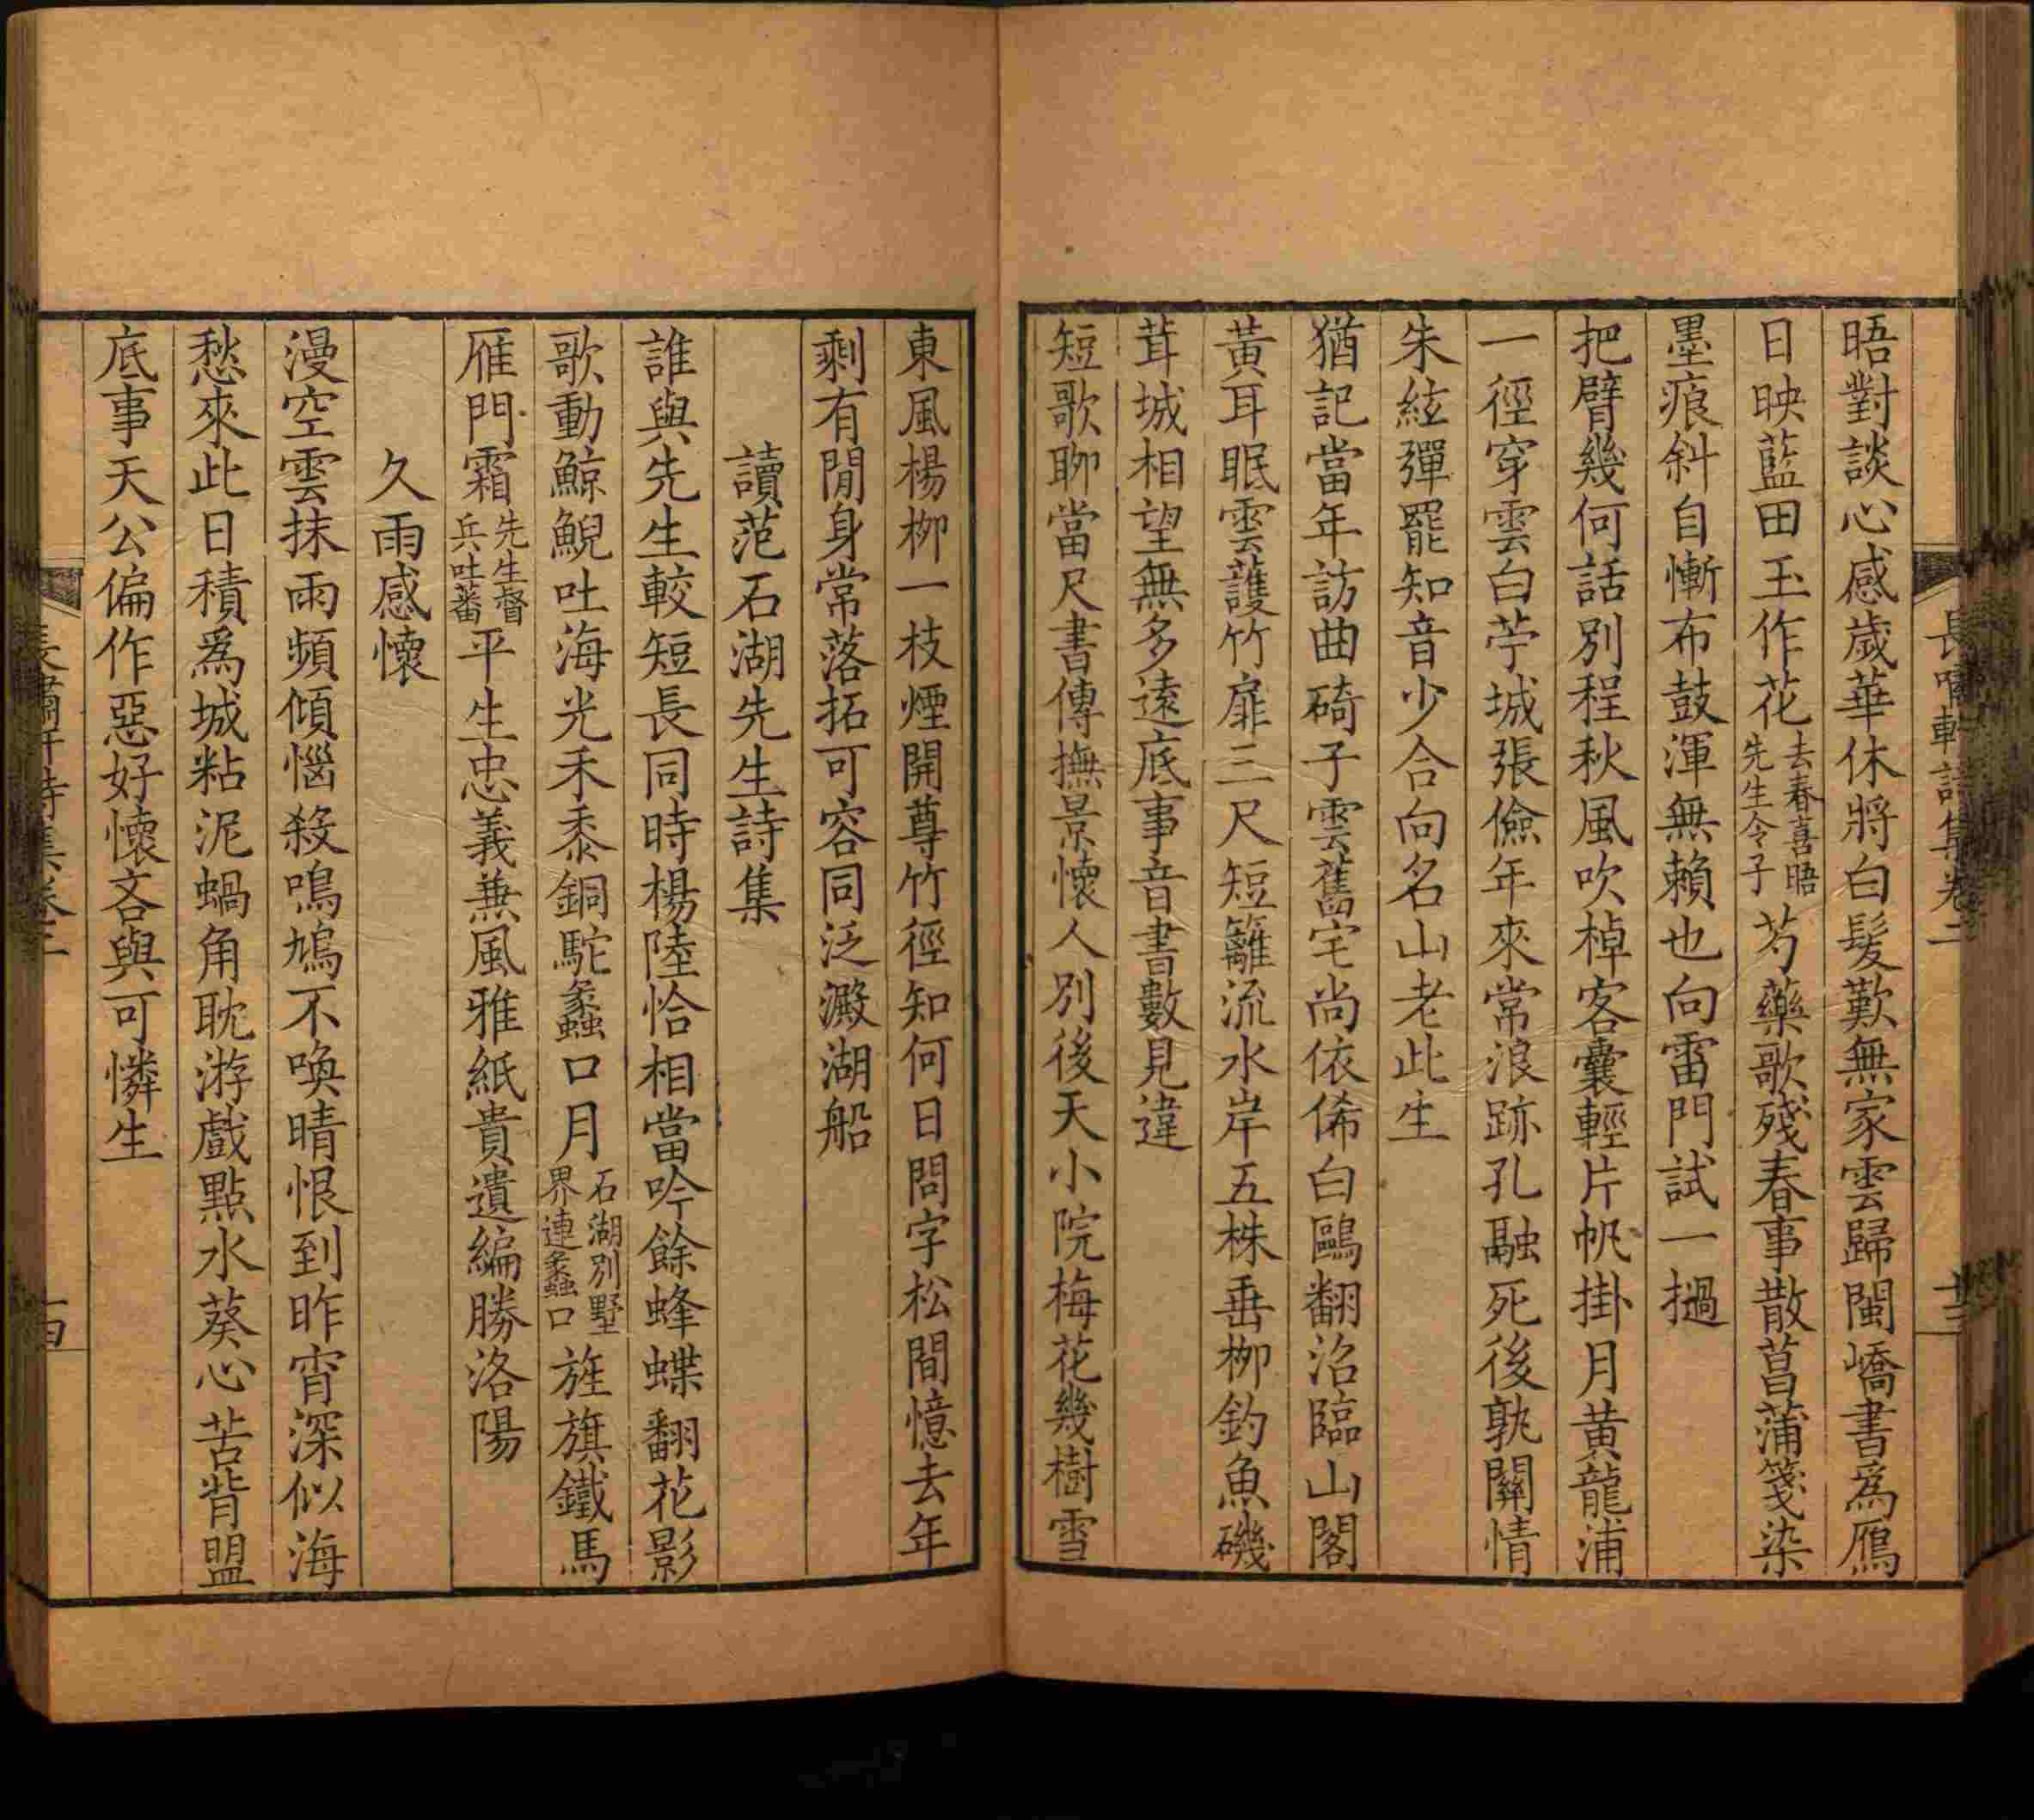 長嘯軒詩集卷二
十三
晤對談心感歲華休將白髮歎無家雲歸閩嶠書爲鴈
日映藍田玉作花去春喜晤先生令子芍藥歌殘春事散菖蒲箋染
墨痕斜自慚布鼓渾無賴也向雷門試一撾
把臂幾何話別程秋風吹棹客囊輕片帆掛月黃龍浦
一徑穿雲白苧城張儉年來常浪跡孔融死後孰關情
朱絃彈罷知音少合向名山老此生
猶記當年訪曲碕子雲舊宅尚依俙白鷗翻沼臨山閣
黃耳眠雲護竹扉三尺短籬流水岸五株垂柳釣魚磯
茸城相望無多遠底事音書數見違
短歌聊當尺書傳撫景懷人別後天小院梅花幾樹雪
東風楊柳一枝煙開尊竹徑知何日問字松間憶去年
剩有閒身常落拓可容同泛澱湖船
讀范石湖先生詩集
誰與先生較短長同時楊陸恰相當吟餘蜂蝶翻花影
歌動鯨鯢吐海光禾黍銅駝蠡口月石湖別墅界連蠡口旌旗鐵馬
雁門霜先生督兵吐蕃平生忠義兼風雅紙貴遺編勝洛陽
久雨感懷
漫空雲抹雨頻傾惱殺鳴鳩不喚晴恨到昨宵深似海
愁來此日積爲城粘泥蝸角耽游戲點水葵心苦背盟
底事天公偏作惡好懷吝與可憐生
長嘯軒詩集卷二
十四